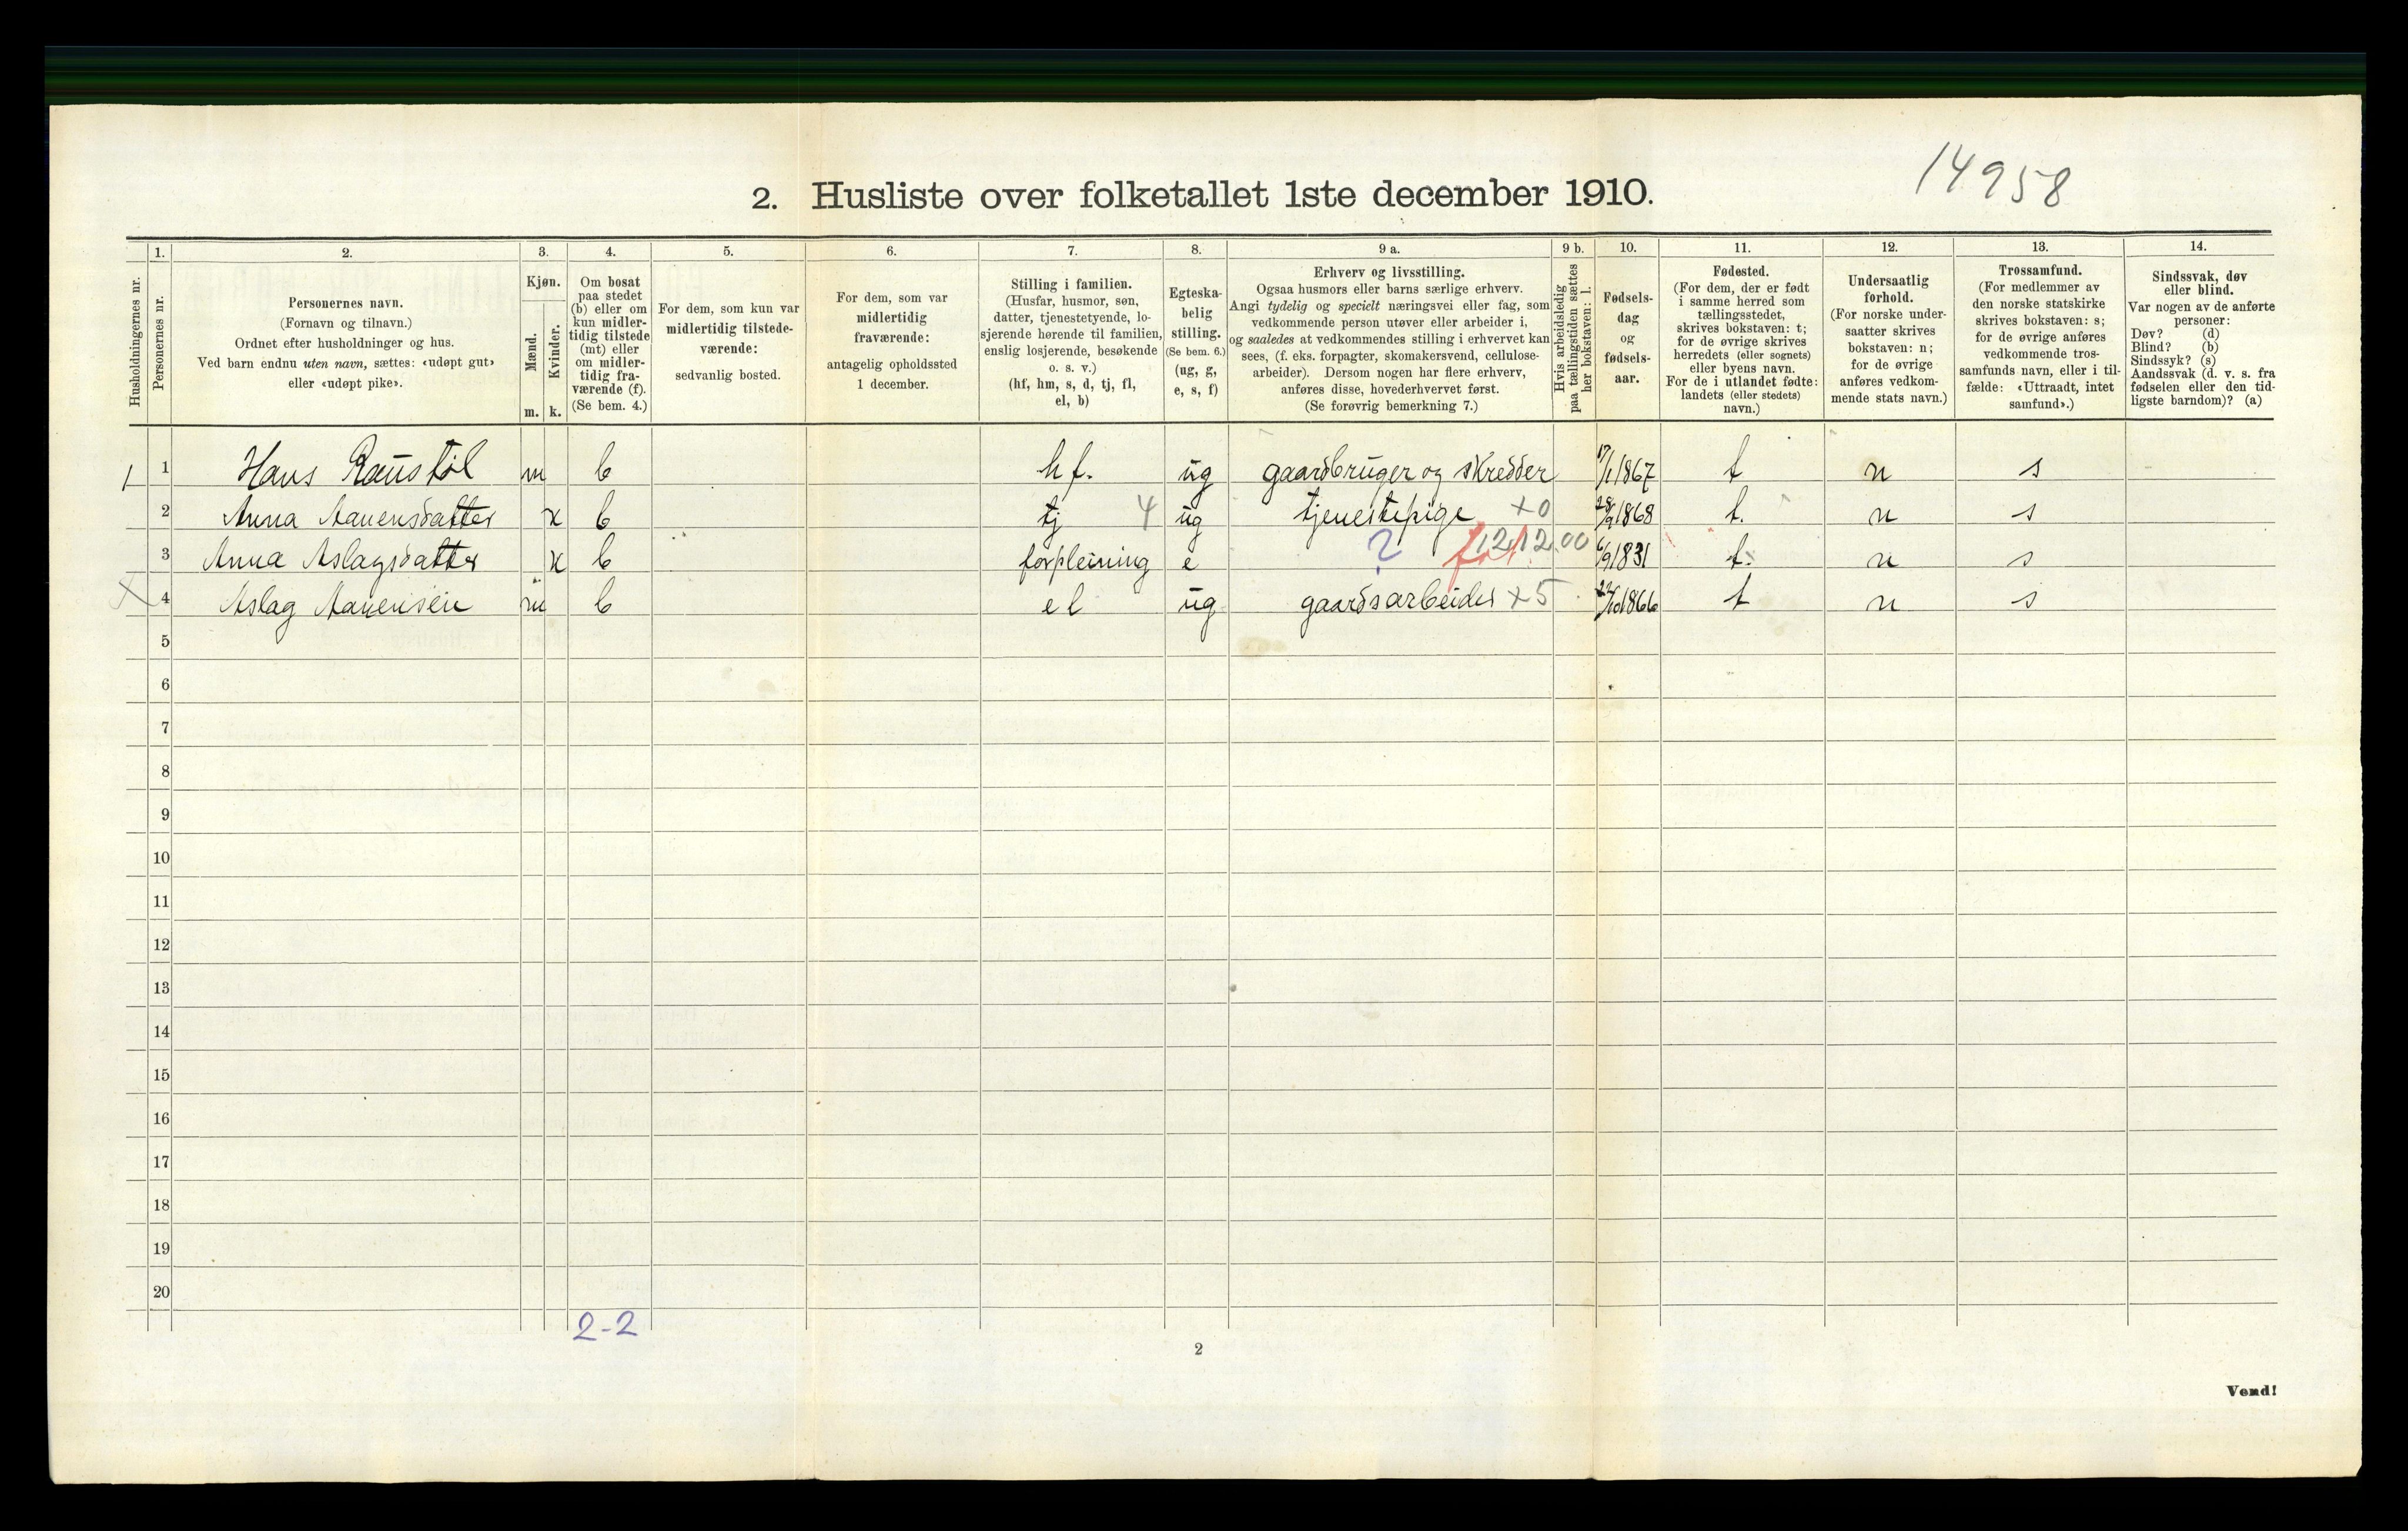 14958
2. Husliste over folketallet 1ste december 1910.
1. 2. 3. 4. 5. 6. 7. 8. 9 a. 9 b. 10. 11. 12. 13. 14.
Husholdningernes nr.
Personernes nr.
Personernes navn.
(Fornavn og tilnavn.)
Ordnet efter husholdninger og hus.
Ved barn endnu uten navn, sættes: «udøpt gut»
eller «udøpt pike».
Kjøn.
Mænd.
Kvinder.
m. k.
Om bosat
paa stedet
(b) eller om
kun midler-
tidig tilstede
(mt) eller
om midler-
tidig fra-
værende (f).
(Se bem. 4.)
For dem, som kun var
midlertidig tilstede-
værende:
sedvanlig bosted.
For dem, som var
midlertidig
fraværende:
antagelig opholdssted
1 december.
Stilling i familien.
(Husfar, husmor, søn,
datter, tjenestetyende, lo-
sjerende hørende til familien,
enslig losjerende, besøkende
o. s. v.)
(hf, hm, s, d, tj, fl,
el, b)
Egteska-
belig
stilling.
(Se bem. 6.)
(ug, g,
e, s, f)
Erhverv og livsstilling.
Ogsaa husmors eller barns særlige erhverv.
Angi tydelig og specielt næringsvei eller fag, som
vedkommende person utøver eller arbeider i,
og saaledes at vedkommendes stilling i erhvervet kan
sees, (f. eks. forpagter, skomakersvend, cellulose-
arbeider). Dersom nogen har flere erhverv,
anføres disse, hovederhvervet først.
(Se forøvrig bemerkning 7.)
Hvis arbeidsledig
paa tællingstiden sættes
her bokstaven: l.
Fødsels-
dag
og
fødsels-
aar.
Fødested.
(For dem, der er født
i samme herred som
tællingsstedet,
skrives bokstaven: t;
for de øvrige skrives
herredets (eller sognets)
eller byens navn.
For de i utlandet fødte:
landets (eller stedets)
navn.)
Undersaatlig
forhold.
(For norske under-
saatter skrives
bokstaven: n;
for de øvrige
anføres vedkom-
mende stats navn.)
Trossamfund.
(For medlemmer av
den norske statskirke
skrives bokstaven: s;
for de øvrige anføres
vedkommende tros-
samfunds navn, eller i til-
fælde: «Uttraadt, intet
samfund».)
Sindssvak, døv
eller blind.
Var nogen av de anførte
personer:
Døv? (d)
Blind? (b)
Sindssyk? (s)
Aandssvak (d. v. s. fra
fødselen eller den tid-
ligste barndom)? (a)
1 1 Hans Raustøl m b hf. ug gaardbruger og skredder 17/1 1867 t n s
2 Anna Aanensdatter k b tj 4 ug tjenestepige +0 28/9 1868 t. n s
3 Anna Aslagsdatter k b forpleining e ? 12,12,00 6/9 1831 t. n s
x 4 Aslag Aanensen m b el ug gaardsarbeider +5 22/10 1866 t n s
5
6
7
8
9
10
11
12
13
14
15
16
17
18
19
20
2-2
2
Vend!